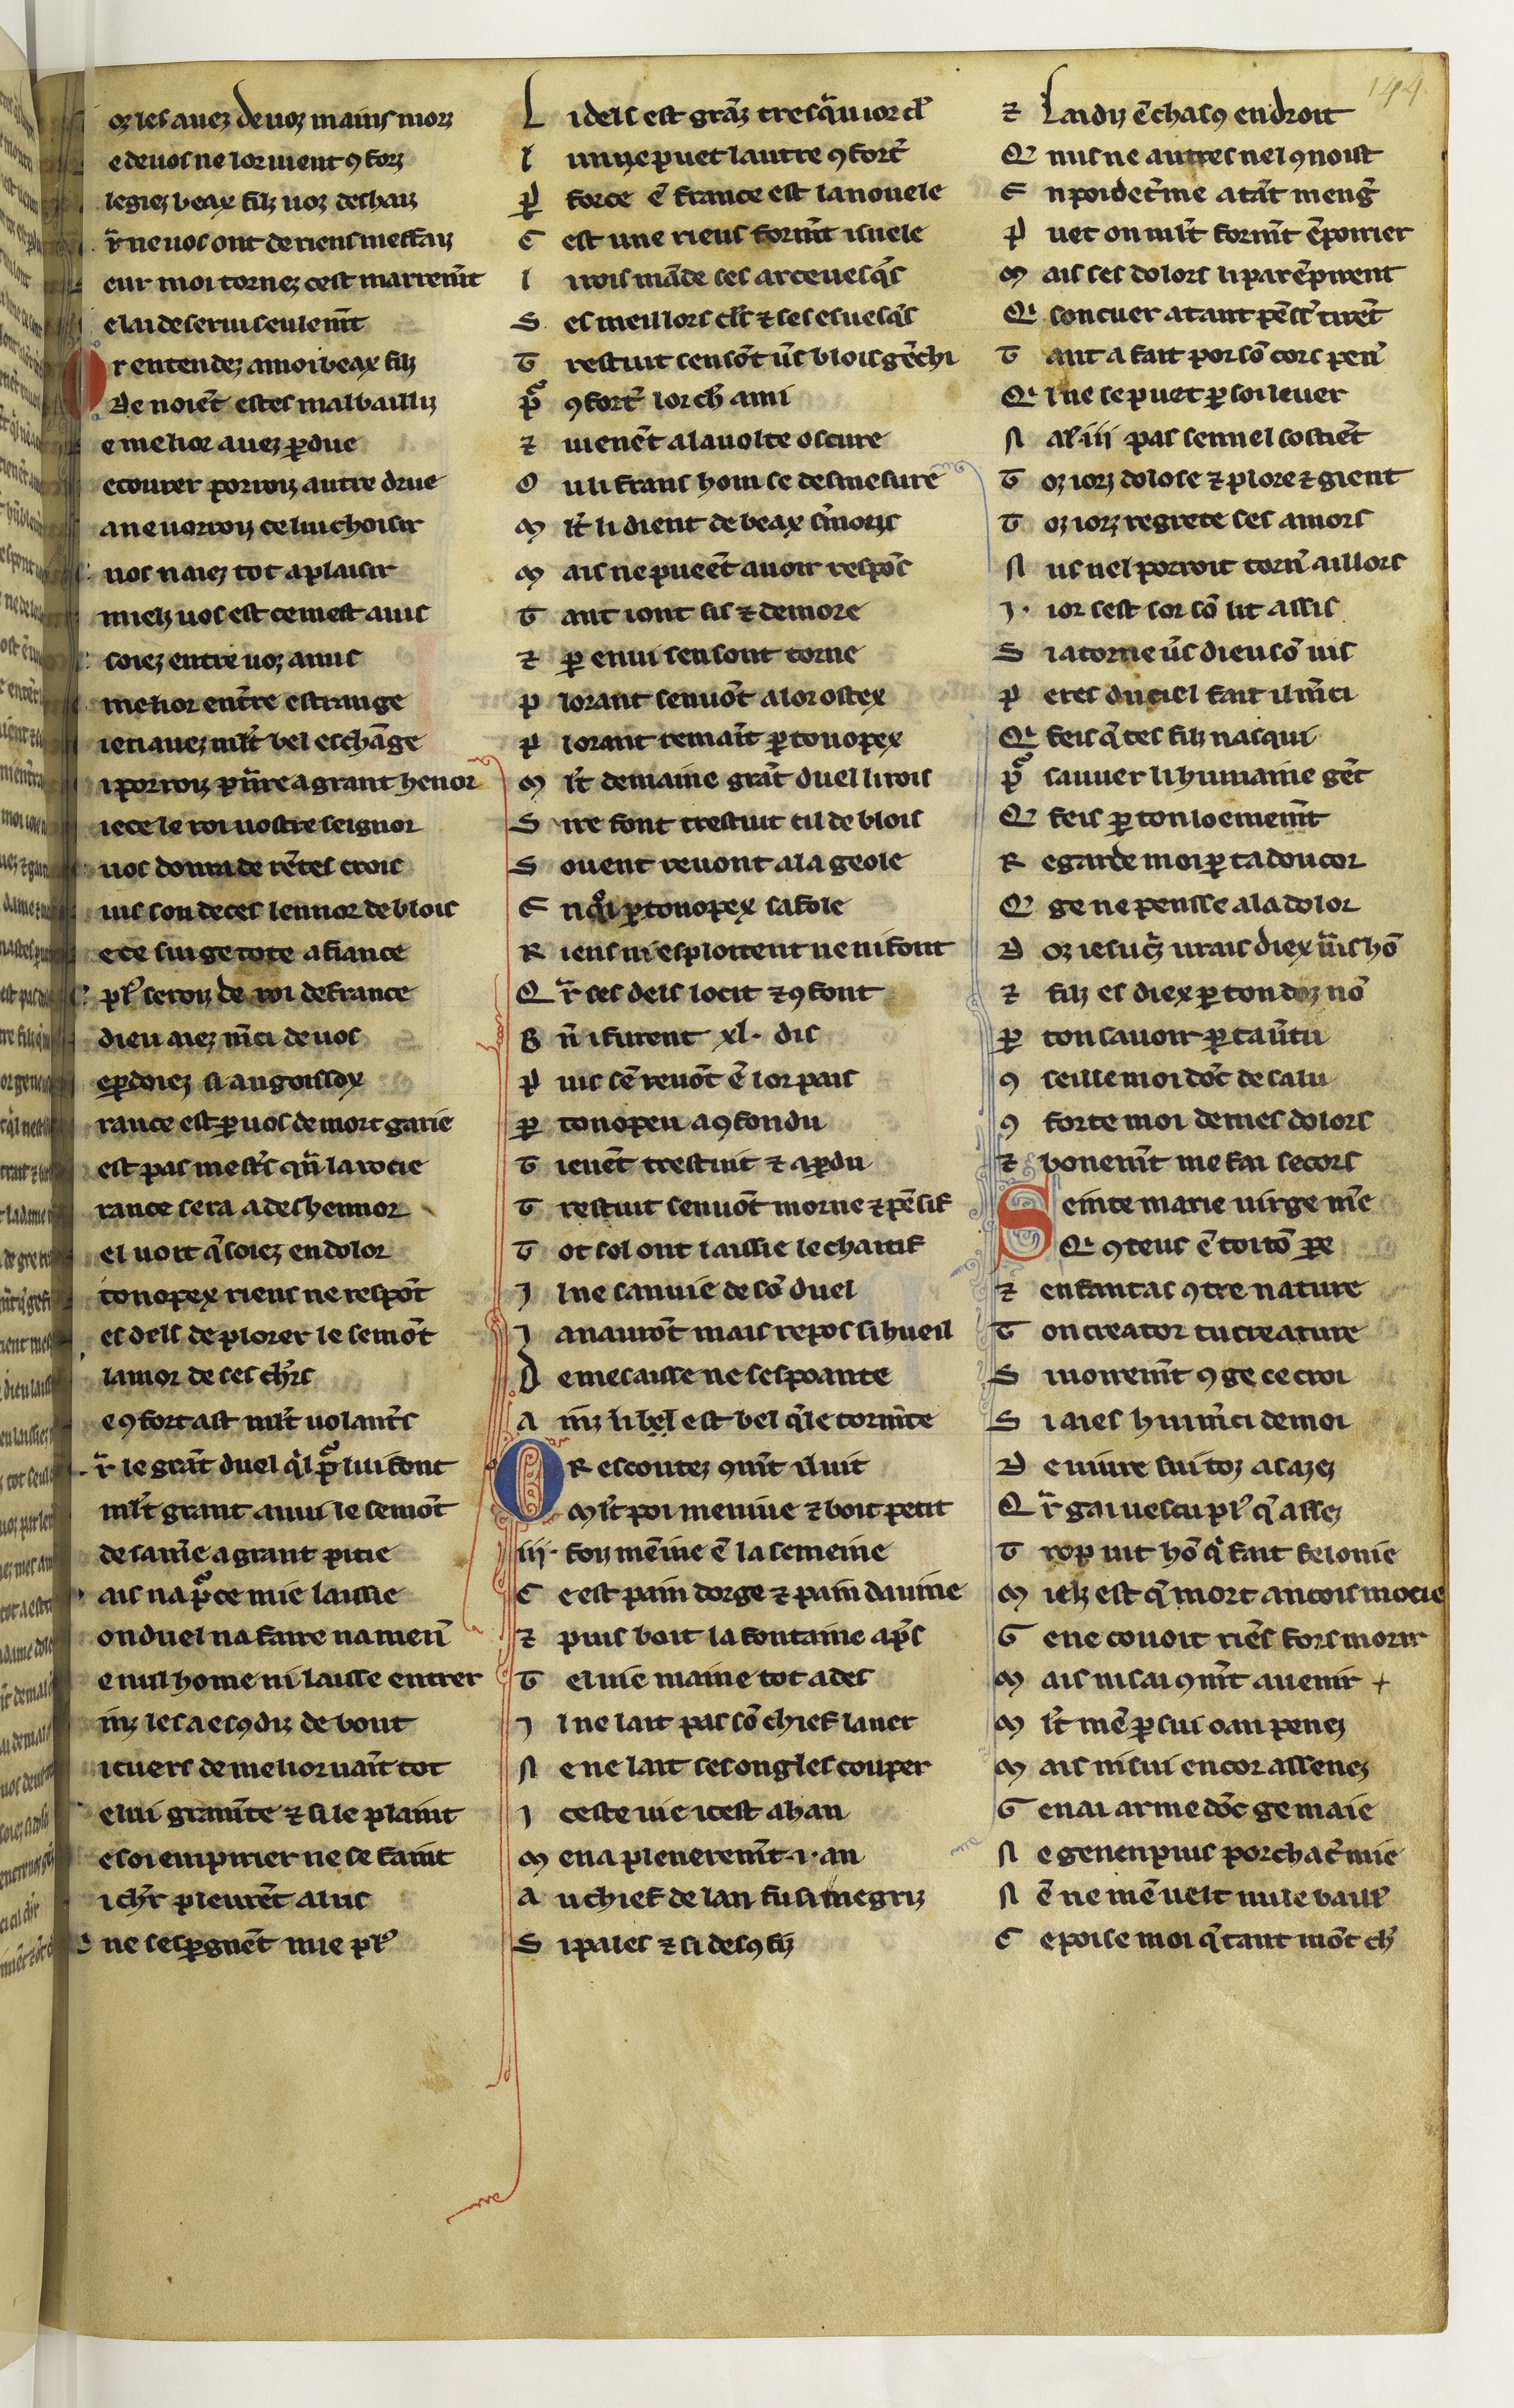 194
oz les auez de uoz mains morz
e de uos ne lor uient ꝯforz
legiez beax filz uoz deshaiz
r̄ ne uos ont de riens meffaiz
eur moi tornez cest marremt̄
e lai deserui seulemt̄
r entendez a moi beax filz
De noiēt estes mal bailliz
e melior auez ꝑdue
ecourer porroiz autre drue
a ne uorroiz celui choisir
uos naiez tot a plaisir
mielz uos est ce mest auis
soiez entre uoz amis
melior ent̄re estrange
i en auez ml̄t bel eschāge
i porroiz pn̄re a grant henor
iece le roi uostre seignor
uos donra de rētes crois
uis son deces lennor de blois
e ce sui ge tote a fiance
plꝰ seroiz de roi de france
dieu aiez m̄ci de uos
e ꝑdoiez si angoissox
rance est ꝑ uos de mort garie
est pas mestrs qn̄ la rocie
rance sera adeshennor
el uoit q̄ soiez en dolor
tonopex riens ne respōt
es dels de plorer le semōt
lamor de ses ch̄rs
e ꝯfort ast ml̄t uolant̄s
r̄ le grāt duel qͥl pͦ lui font
ml̄t grant anui le semōt
de sa m̄e a grant pitie
ais na pͦ ce mie laissie
on duel na faire na men̄
e nul home ni laisse entrer
inz les a escꝯdiz de bout
i cuers de melior uāit tot
e lui gram̄te ⁊ si le plaint
e soi empirier ne se faint
i ch̄r pleurēt a luis
ne sesꝑgnēt mie plꝰ
L i dels est grāz tresqͣuior cl̄
l i uns ne puet lautre ꝯfort̄
ꝑ force ē france est la nouele
C est une riens formt̄ isnele
l i rois māde ses arceuesqs̄
S es meillors cl̄s ⁊ ses esuesqs̄
T restuit sen sōt ūs blois gēchi
pͦ ꝯfort̄ lor ch̄ ami
⁊ uienēt a la uolte oscure
O u li frans hom se desmesure
M l̄t li dient de beax s̄mons
M ais ne pueēt auoir respōs
T ant i ont sis ⁊ demore
⁊ ꝑ enui sen sont torne
P lorant senuōt a lor ostex
P lorant remāit ꝑtonopex
M l̄t demaine grāt duel li rois
S i re font trestuit cil de blois
S ouent reuont a la geole
E nqͥ ꝑtonopex safole
R iens ni esploitent ne ni font
Q r̄ ses dels locit ⁊ ꝯfont
B n̄ i furent xl. dis
P uis sē reuōt ē lor pais
ꝑ tonopeu a ꝯfondu
T ienēt trestuit ⁊ a ꝑdu
T restuit senuōt morne ⁊ pēsif
T ot sol ont laissie le chaitif
I l ne sanuie de sō duel
I a naurōt mais repos si hueil
D e mesaisse ne sespoante
A inz li bel est bel qͥl le tormente
OR escoutez ꝯmt̄ il uit
M l̄t poi meniue ⁊ boit petit
iij. foiz mēiue ē la semeine
C e est pain dorge ⁊ pain dauine
⁊ puis boit la fontaine apͤs
T el uie maine tot ades
I l ne lait pas sō chief lauer
N e ne lait ses ongles couper
I ceste uie icest ahan
M ena plenieremt̄ .i. an
A u chief de lan fu si megriz
S i pales ⁊ si descꝯfiz
⁊ Laidiz ē chascꝯ endroit
Q nus ne autres nel ꝯnoist
E n poi de t̄me a tāt menḡ
P uet on ml̄t formt̄ ēpoirier
M ais ses dolors li par ēpirent
Q i son cuer a tant pēs̄ tirēt
T ant a fait por sō cors pen̄
Q i l ne se puet ꝑ soi leuer
N al iii pas sen nel sostiēt
T oz iorz dolose ⁊ plore ⁊ gient
T oz iorz regrete ses amors
N us nel porroit torn̄ aillors
I. ior sest sor sō lit assis
S i a torne ūs dieu sō uis
P eres du ciel fait il m̄ci
Q i feis q̄ tes filz nasqui
pͦ sauuer lihumaine gēt
Q feis ꝑ ton loememt̄
R egarde moi ꝑ ta doucor
Q ge ne pensse a la dolor
D oz iesucͥz urais diex urais hō
⁊ filz es diex ꝑ ton doz nō
ꝑ ton sauoir ꝑ ta ūtu
ꝯ seille moi dōc de salu
ꝯ forte moi de mes dolors
⁊ bonemt̄ me fai secors
Seinte marie uirge m̄e
Q i ꝯceus ē toi tō pe
⁊ enfantas ꝯtre nature
T on creator tu creature
S i uoiremt̄ ꝯ ge ce croi
S i aies hui m̄ci de moi
D e uiure sui toz asazez
Q r̄ gai uescu plꝰ q̄ assez
T rop uit hō qͥ fait felonie
M ielz est q̄ mort ancois mocie
G e ne couoit riēs fors morir
M ais ni sai ꝯmt̄ auenir +
M l̄t mē ꝑ sui oan penez
M ais ni sui encor assenez
G e nai arme dōc ge maie
N e ge nen puis porchac̄ mie
N ē ne mē uelt nule baillꝰ
C e poise moi q̄ tant mōt ch̄